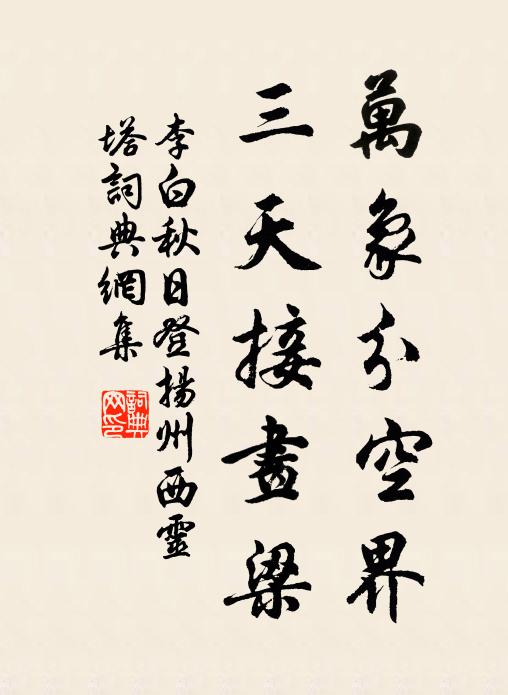 萬象分空界
三天接畫梁
李白秋日登揚州西靈
塔詞典網集
詞典网印